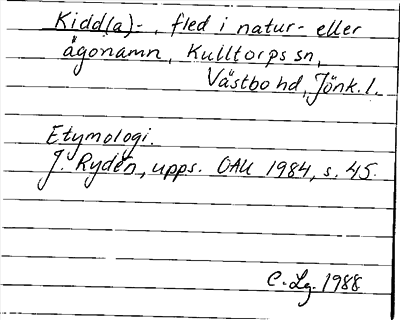 Kidd(a)-, fled i natur- eller
ägonamn, Kulltorps sn,
Västbo hd, Jönk. l.
Etymologi.
J. Rydén, upps. OAU 1984, s. 45.
C. Lg. 1988